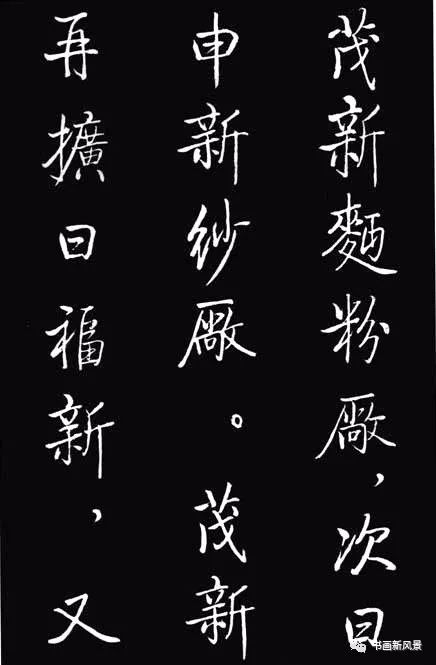 茂新麵粉廠，次曰
申新紗廠。茂新
再擴曰福新，又
书画新风景